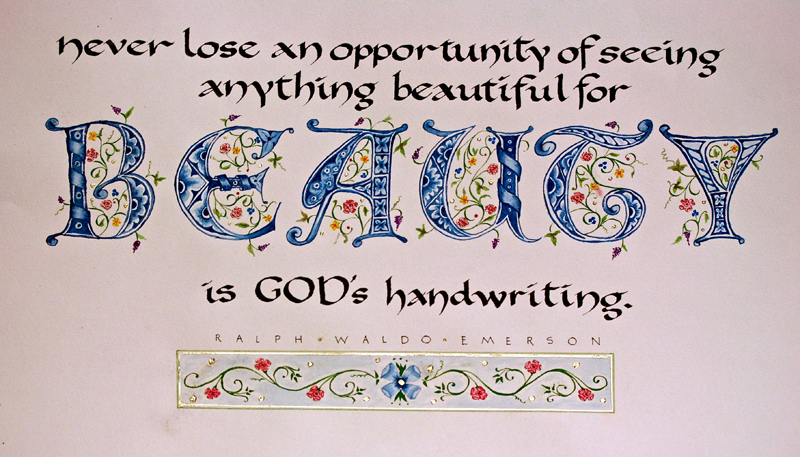 never lose an opportunity of seeing
anything beautiful for
BEAUTY
is GOD's handwriting.
RALPH • WALDO • EMERSON